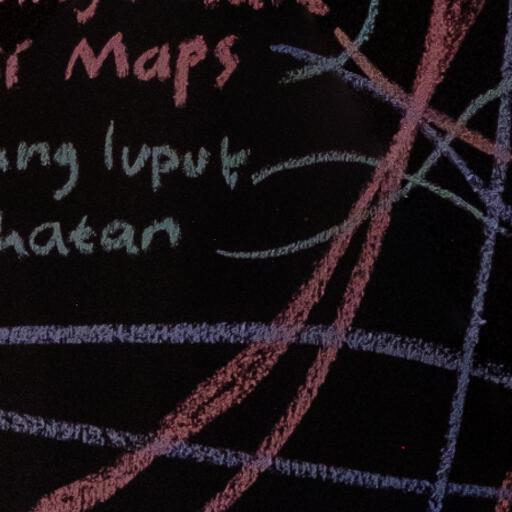 r Maps
ang luput
hatan